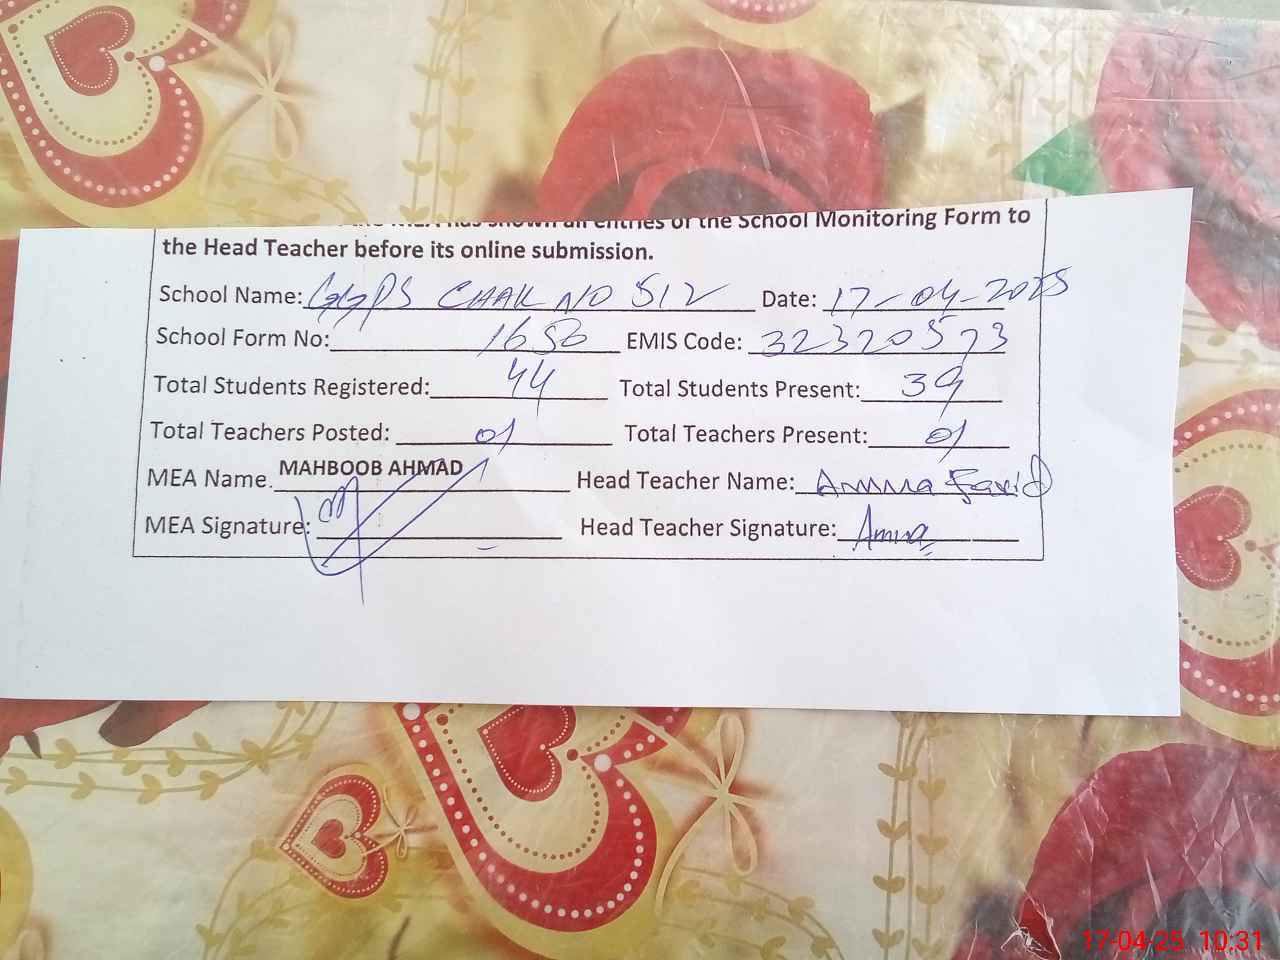 has shown all entries of the School Monitoring Form to
the Head Teacher before its online submission.
School Name: GGPS CHAK NO 512 Date: 17-04-2025
School Form No: 1650 EMIS Code: 32320573
Total Students Registered: 44 Total Students Present: 39
Total Teachers Posted: 01 Total Teachers Present: 01
MEA Name. MAHBOOB AHMAD Head Teacher Name: Amna Farid
MEA Signature: Head Teacher Signature: Amna
17-04-25 10:31